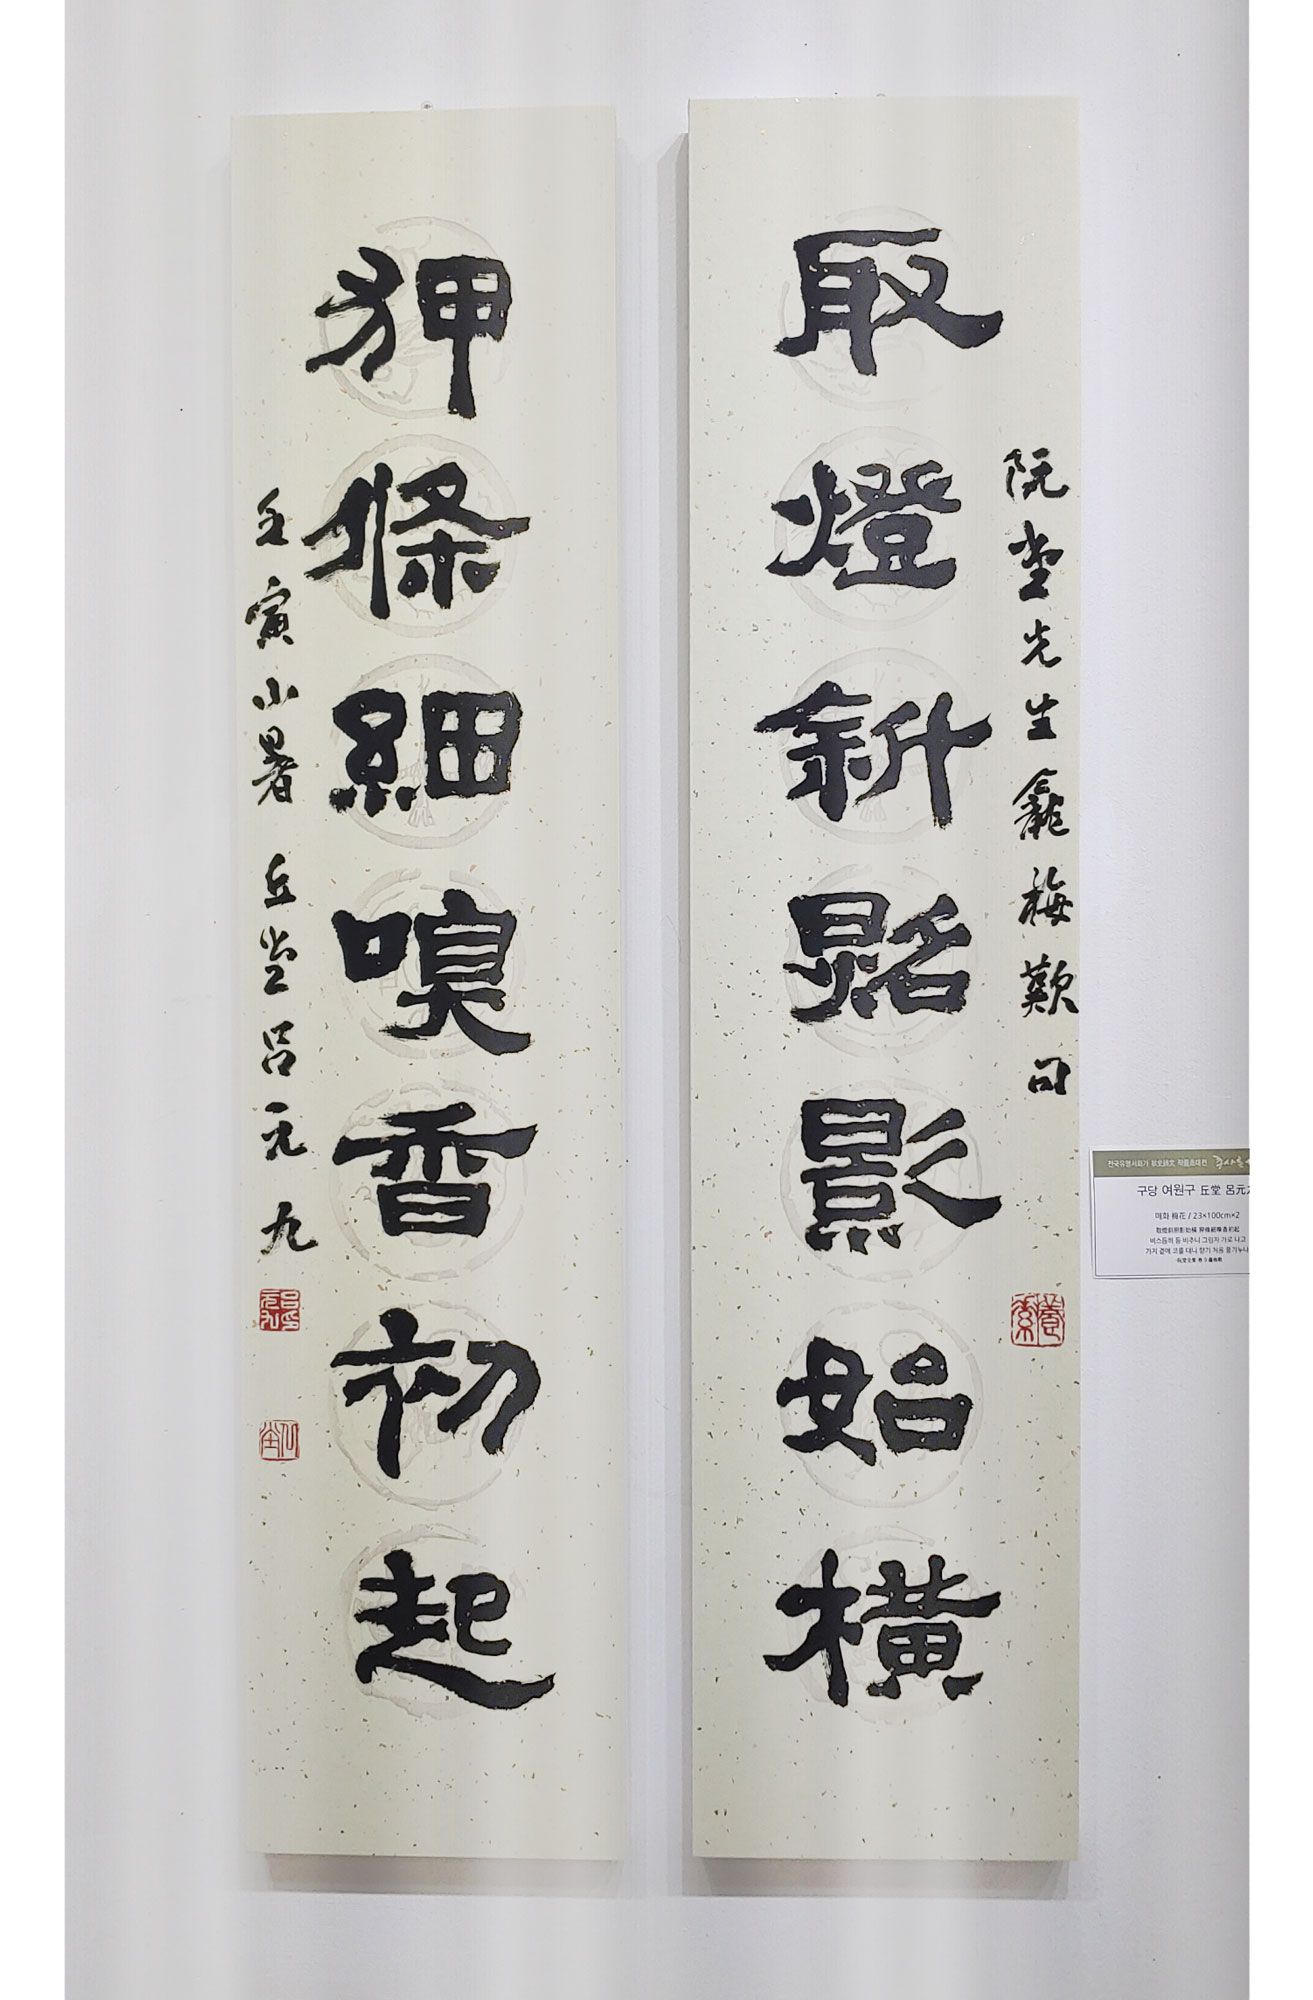 阮堂先生龕梅歎句
取燈斜照影始橫
狎條細嗅香初起
壬寅小暑 丘堂呂元九
전국유명서화가 秋史詩文 작품초대전
구당 여원구 丘堂 呂元
매화 梅花 / 23×100cm×2
取燈斜照影始橫 狎條細嗅香初起
비스듬히 등 비추니 그림자 가로 나고
가지 곁에 코를 대니 향기 처음 풍기누나